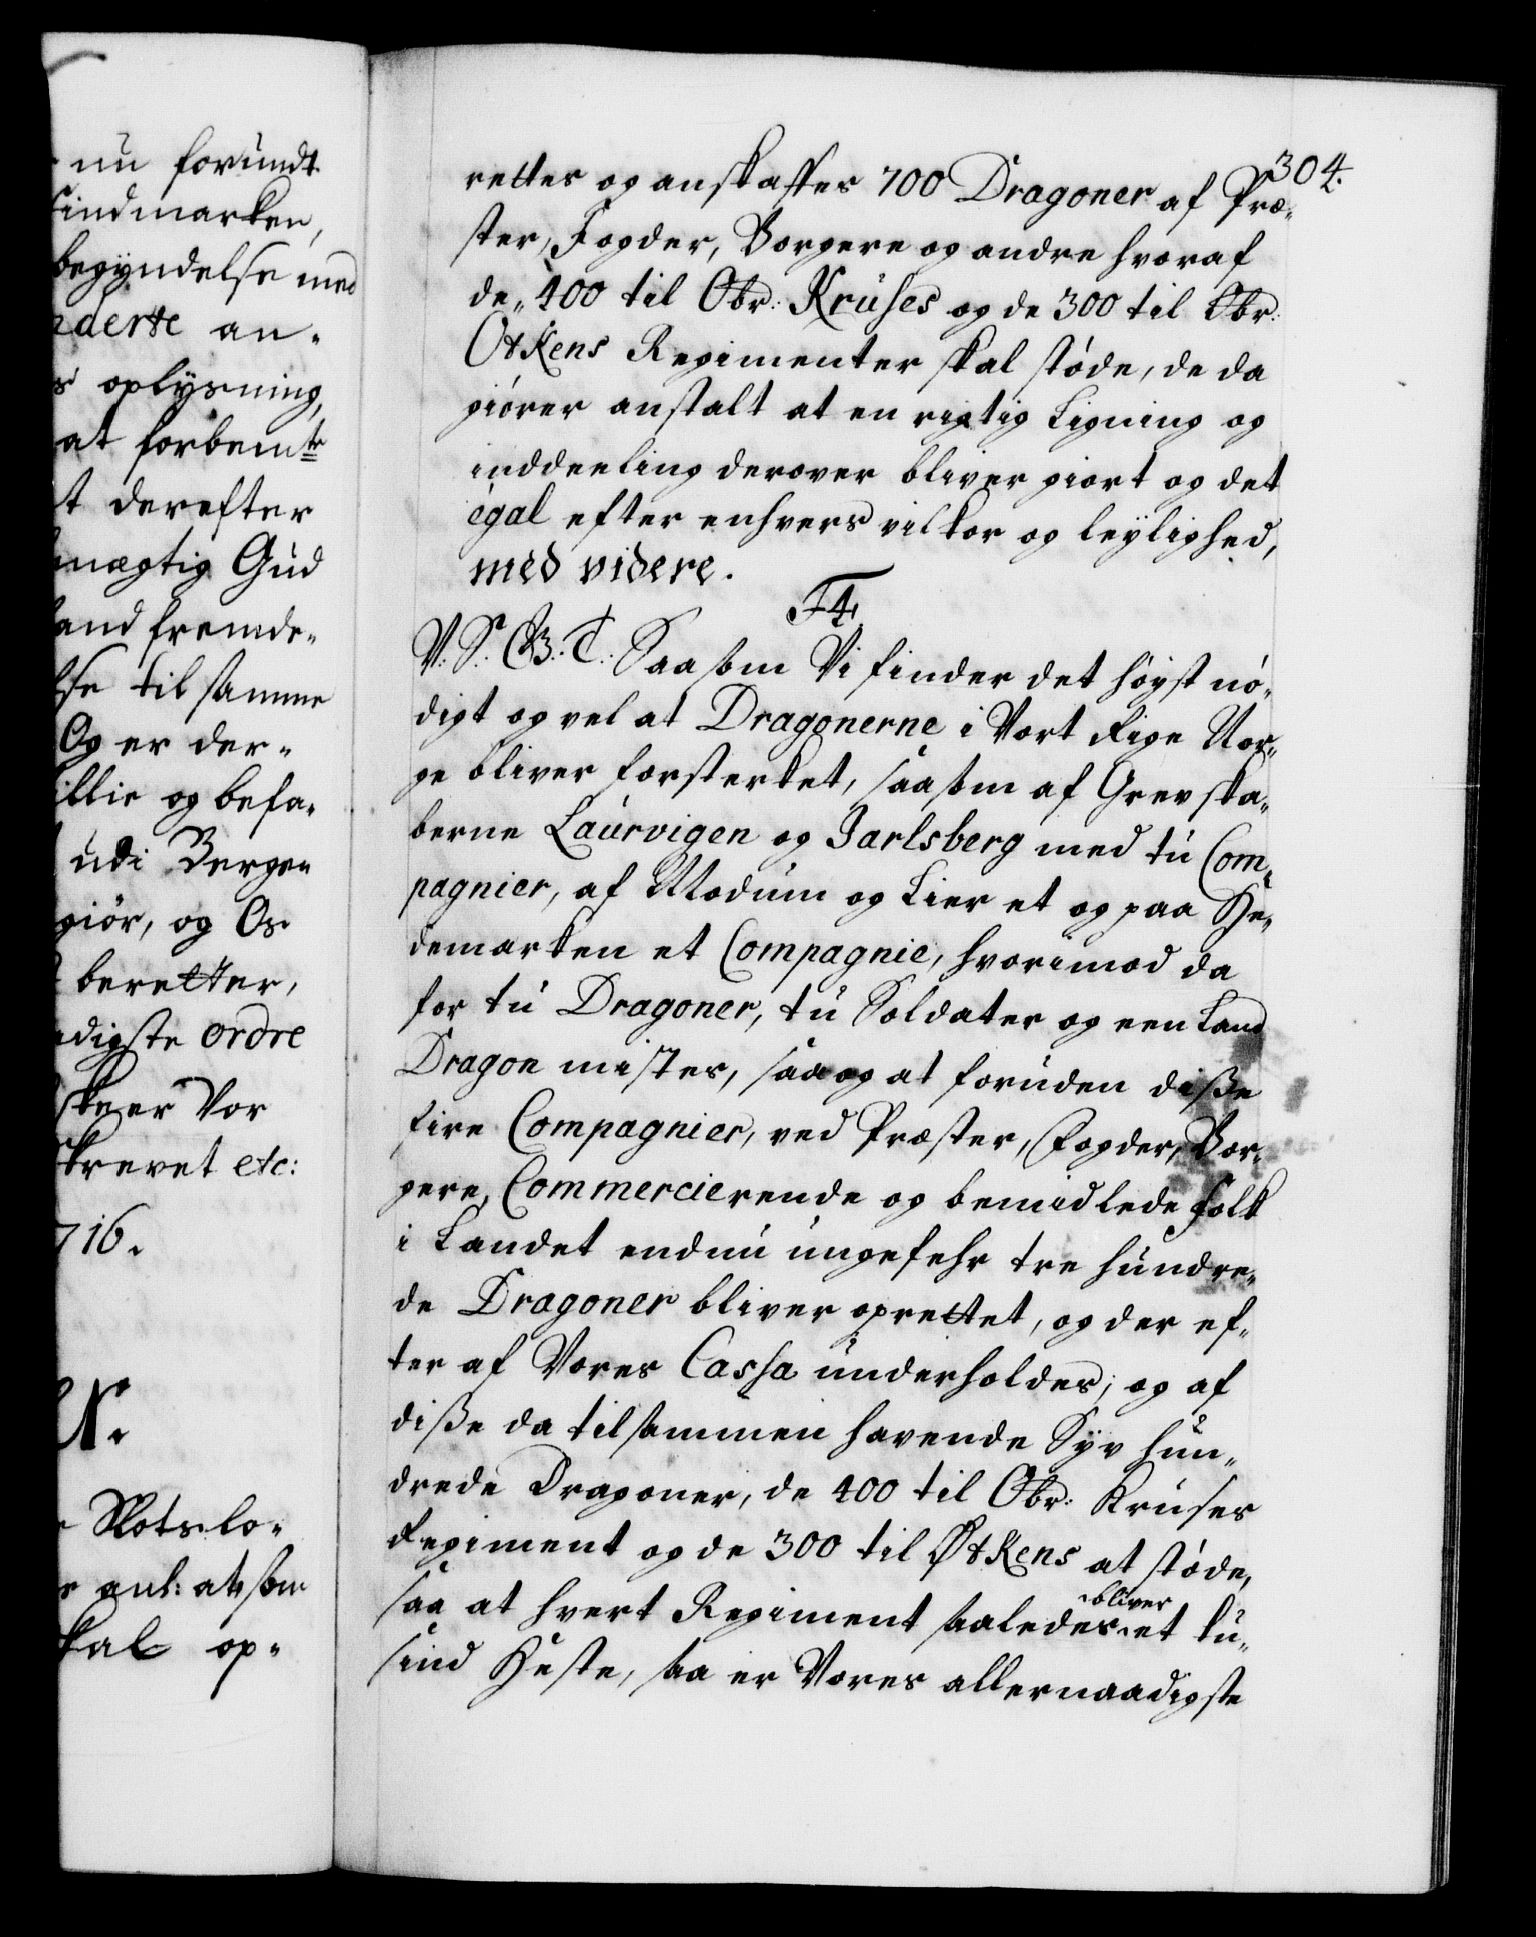 nu forundt
Findmarken,
begyndelse med
derte an-
s oplysning,
at forbemte
t derefter
mægtig Gud
and fremde-
lse til samme
Og er der-
illie og befa-
udi Bergen
giör, og Os
beretter,
adigste ordre
skeer Vor
krevet etc:
716.
N.
Slotslo-
anl: at som
kal op-
304.
rettes og anskaffes 700 Dragoner af Præ-
ster, Fogder, Borgere og andre hvoraf
de 400 til Obr: Kruses og de 300 til Obr:
Øtkens Regimenter skal støde, de da
giörer anstalt at en rigtig Ligning og
inddeeling derover bliver giort og det
égal efter enhvers vilkor og leylighed,
med videre.
F4.
V: S: G: B: T: Saasom Vi finder det høyst nö-
digt og vel at Dragonerne i Vort Rige Nor-
ge bliver forsterket, saasom af Grevska-
berne Laurvigen og Jarlsberg med tu Com-
pagnier, af Modum og Lier et og paa He-
demarken et Compagnie, hvorimod da
for tu Dragoner, tu Soldater og een Land
Dragon mistes, saa og at foruden diße
fire Compagnier, ved Præster, Fogder, Bor-
gere, Commercierende og bemidlede Folk
i Landet endnu ungefehr tre hundre-
de Dragoner bliver oprettet, og der ef-
ter af Vores Cassa underholdes; og af
diße da tilsammen havende Syv hun-
drede Dragoner, de 400 til Obr: Kruses
Regiment og de 300 til Øtkens at støde,
saa at hvert Regiment saaledes bliver et tu-
sind Heste, saa er Vores allernaadigste